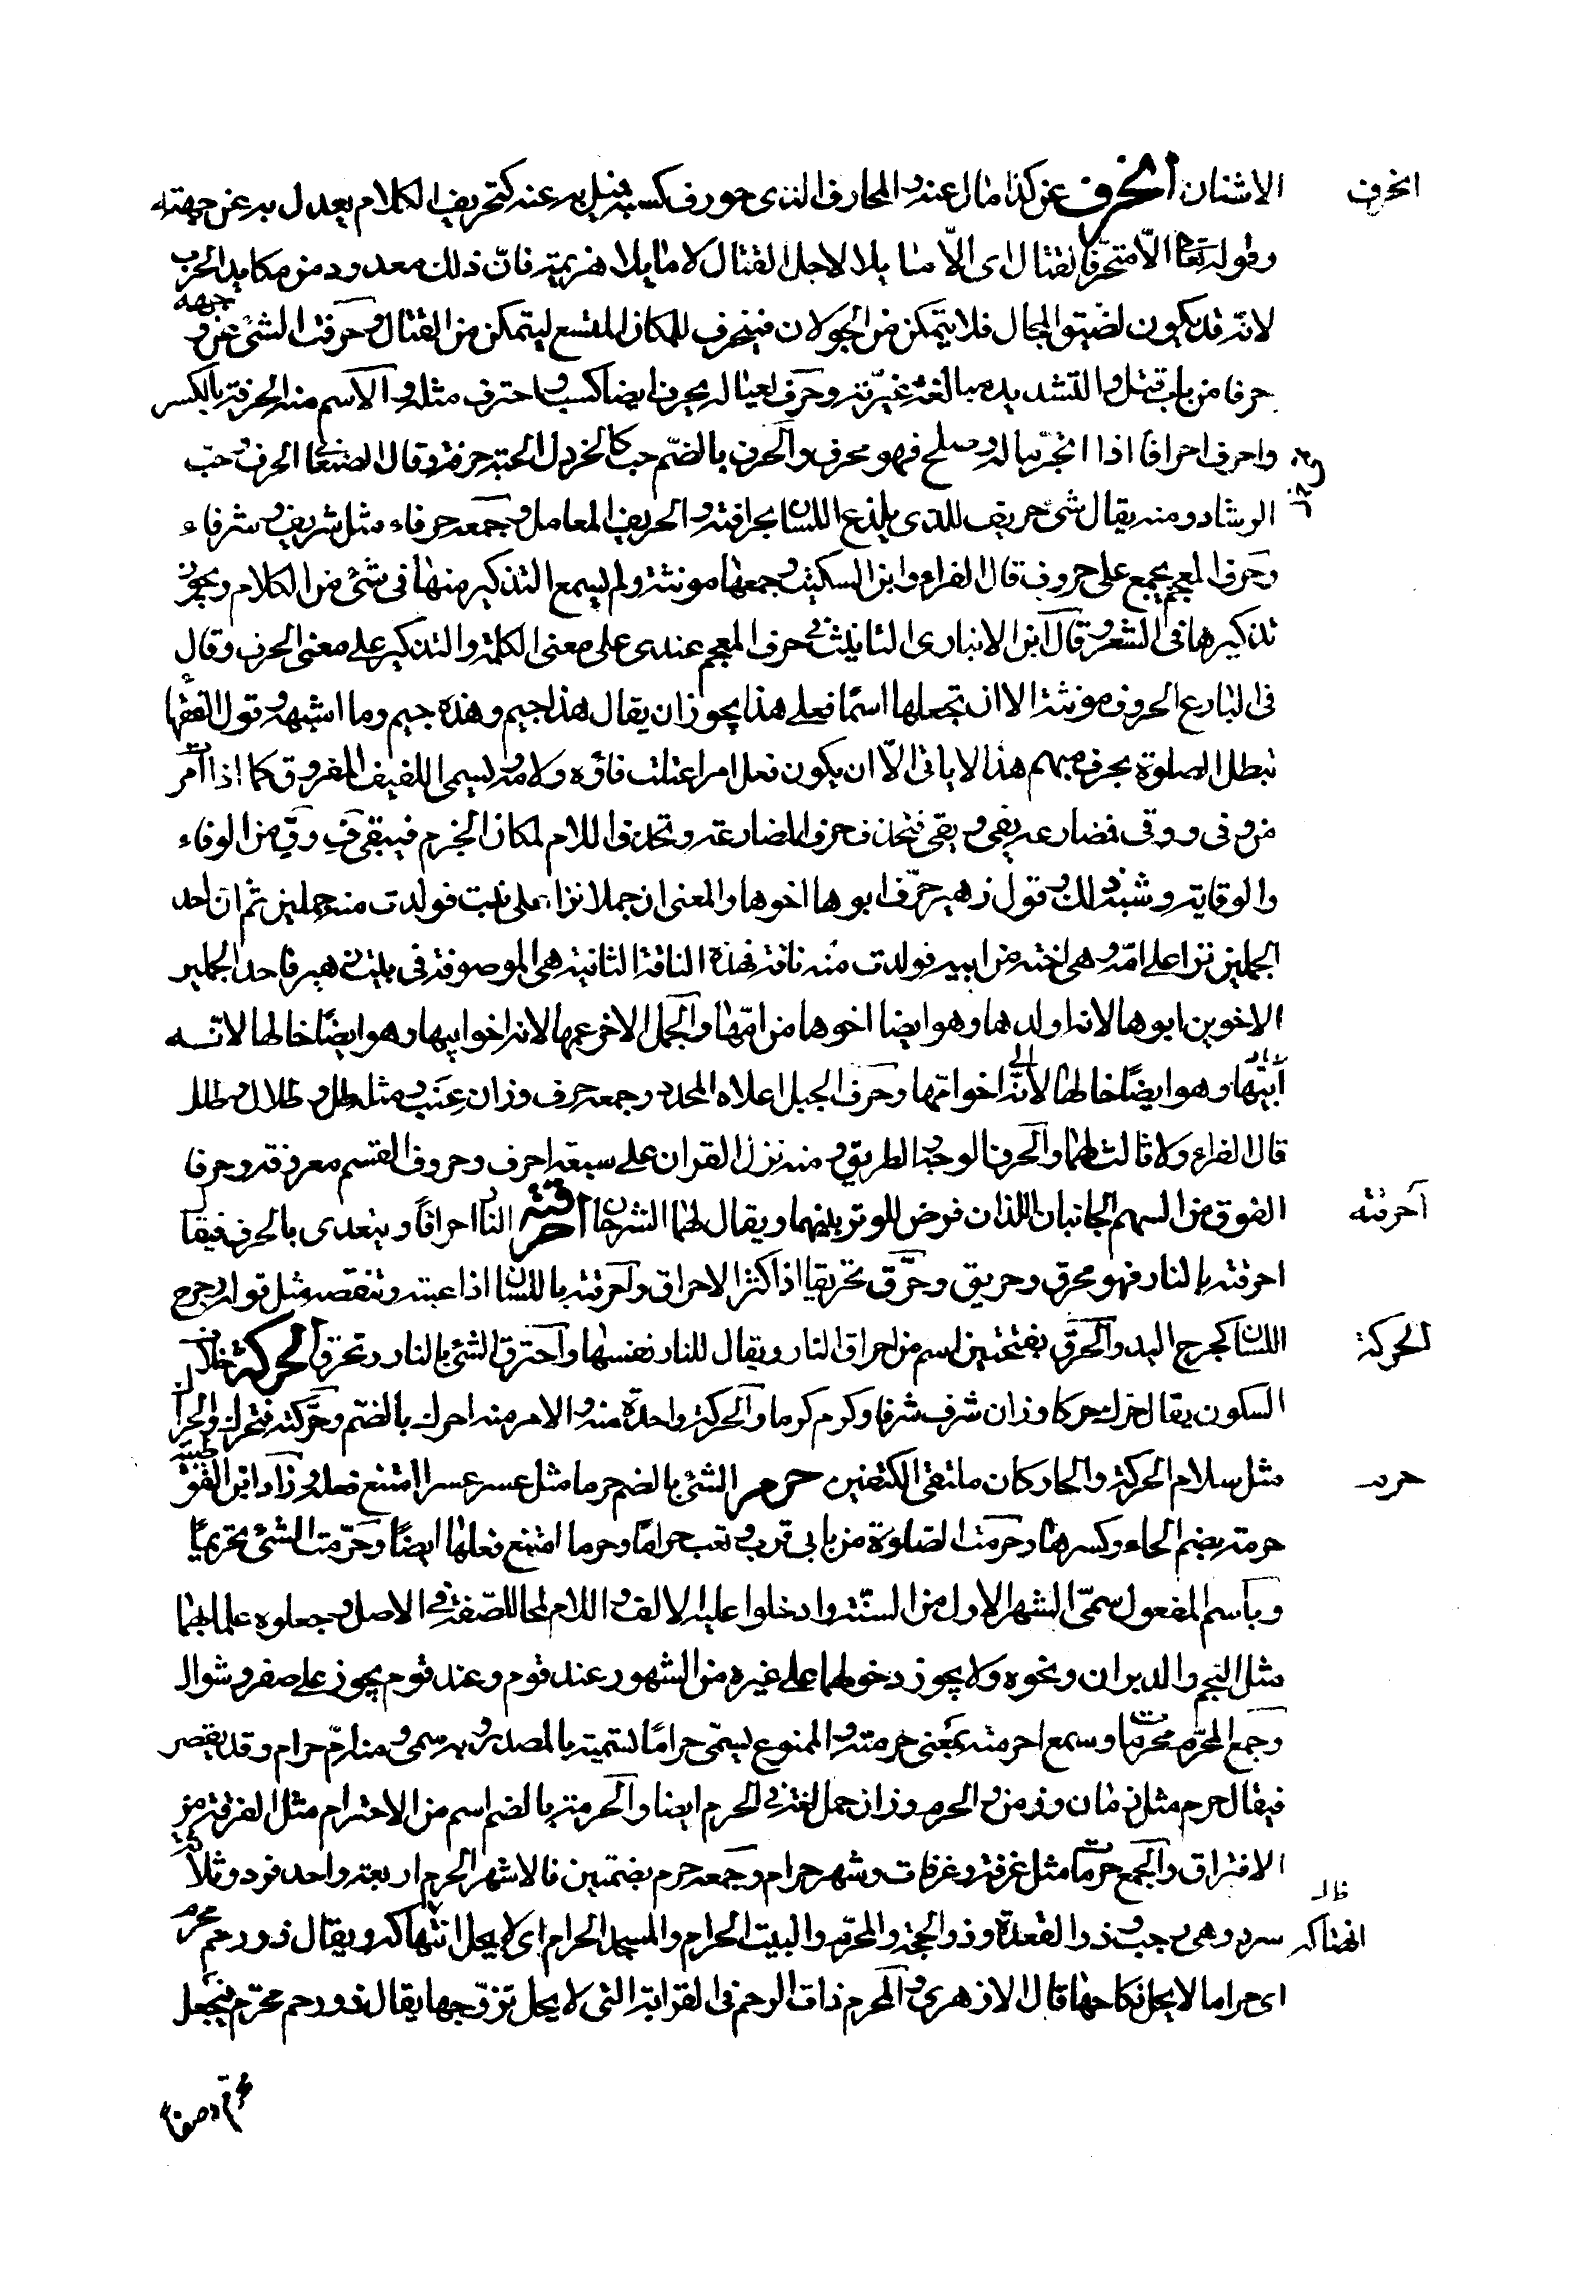 انحرف
الاشنان انحرف عن كذا مال عنه والمحارف الذى حورف كسبه فميل به عنه كتحريف الكلام يعدل به عن جهته
وقوله تعا الّا متحرّفا لقتال اى الّا مايلا لاجل القتال لا مايلا هزيمة فانّ ذلك معدود من مكايد الحرب
لانه قد يكون لضيق المجال فلا يتمكن من الجولان فينحرف للمكان المتسع ليتمكن من القتال وحرفت الشئ عن وجهه
حرفا من باب قتل والتشديد مبالغة غيّرته وحرف لعياله يحرف ايضا كسب واحترف مثله والاسم منه الحرفة بالكسر
واحرف احرافا اذا انجر ماله وصلح فهو محرف والحرف بالضّم حب كالخردل الحبة حرفة وقال الصغا الحرف حب
الرشاد ومنه يقال شئ حريف للذى يلذع اللسان بحرافته والحريف المعامل وجمعه حرفاء مثل شريف وشرفاء
وحرف المعجم يجمع على حروف قال الفراء وابن السكيت وجمعها مونثة ولم يسمع التذكير منها فى شئ من الكلام ويجوز
تذكيرها فى الشعر وقال ابن الانبارى التانيث فى حرف المعجم عندى على معنى الكلمة والتذكير على معنى الحرف وقال
فى البارع الحروف مونثة الا ان تجعلها اسمًا فعلى هذا يجوز ان يقال هذا جيم وهذه جيم وما اشبهه وقول الفقها
تبطل الصلوة بحرف مبهم هذا لا ياتى الّا ان يكون فعل امر اعتلت فاؤه ولامه ويسمى اللفيف المفروق كما اذا امر
من وفى ووقى فمضارعه يفى ويقى فتحذف حرف المضارعة وتحذف اللام لمكان الجزم فيبقى فِ وقِ من الوفاء
والوقاية وشبه ذلك وقول زهير حرف ابوها اخوها والمعنى ان جملا نزا على بنت فولدت منه جملين ثم ان احد
الجملين نزا على امّه وهى اخته من ابيه فولدت منه ناقة فهذه الناقة الثانية هى الموصوفة فى بيت زهير فاحد الجملين
الاخوين ابوها لانه اولدها وهو ايضا اخوها من امّها والجمل الاخر عمها لانه اخو ابيها وهو ايضًا خالها لانّه
ابيها وهو ايضًا خالها لانّه اخو امّها وحرف الجبل اعلاه المحدد وجمعه حرف وزان عنب ومثله طل وطلال وطلل
قال الفراء ولا ثالث لهما والحرف الوجه والطريق ومنه نزل القران على سبعة احرف وحروف القسم معروفة وحرفا
احرقته
الفوق من السهم الجانبان اللذان فرض للوتر بينهما ويقال لهما الشرخان احرقته النار احراقًا ويتعدى بالحرف فيقال
احرقته بالنار فهو محرق وحريق وحرّق تحريقا اذا كثر الاحراق واحرقته باللسان اذا عبته وتنقصه مثل قوله وجرح
الحركة
اللسان كجرح اليد والحرق بفتحتين اسم من احراق النار ويقال للنار نفسها واحترق الشئ بالنار وتحرق الحركة خلاف
السكون يقال حرك حركا وزان شرف شرفا وكرم كرما والحركة واحدة منه والامر منه احرك بالضّم وحرّكته فتحرك والحراك
حرم
مثل سلام الحركة والحاركان ملتقى الكتفين حرم الشئ بالضم حرما مثل عسر عسرا امتنع فعله وزاد ابن القوطية
حرمة بضم الحاء وكسرها وحرمت الصلوة من بابى قرب وتعب حرامًا وحرما امتنع فعلها ايضًا وحرّمت الشئ تحريمًا
وباسم المفعول سمّى الشهر الاول من السنّة وادخلوا عليه الالف واللام لمحا للصّفة فى الاصل وجعلوه علما بهما
مثل النجم والدبران ونحوه ولا يجوز دخولهما على غيره من الشهور عند قوم وعند قوم يجوز على صفر وشوال
وجمع المحرّم محرمات وسمع احرمته بمعنى حرمته والممنوع يسمّى حرامًا تسمية بالمصدر وبه سمى ومنه امّ حرام وقد يقصر
فيقال حرم مثل زمان وزمن والحرم وزان حمل لغة فى الحرم ايضا والحرمة بالضم اسم من الاحترام مثل الفرقة من
الافتراق والجمع حرمات مثل غرفة وغرفات وشهر حرام وجمعه حرم بضمتين فالاشهر الحرم اربعة واحد فرد وثلاثة
ظ
انتهاكه
سرد وهى رجب وذو القعدة وذو الحجة والمحرم والبيت الحرام والمسجد الحرام اى لا يحل انتهاكه ويقال ذو رحم محرم
اى حراما لا يحل نكاحها قال الازهرى والمحرم ذات الرحم فى القرابة التى لا يحل تزوّجها يقال ذو رحم محرم فيجعل
محرم وصفا